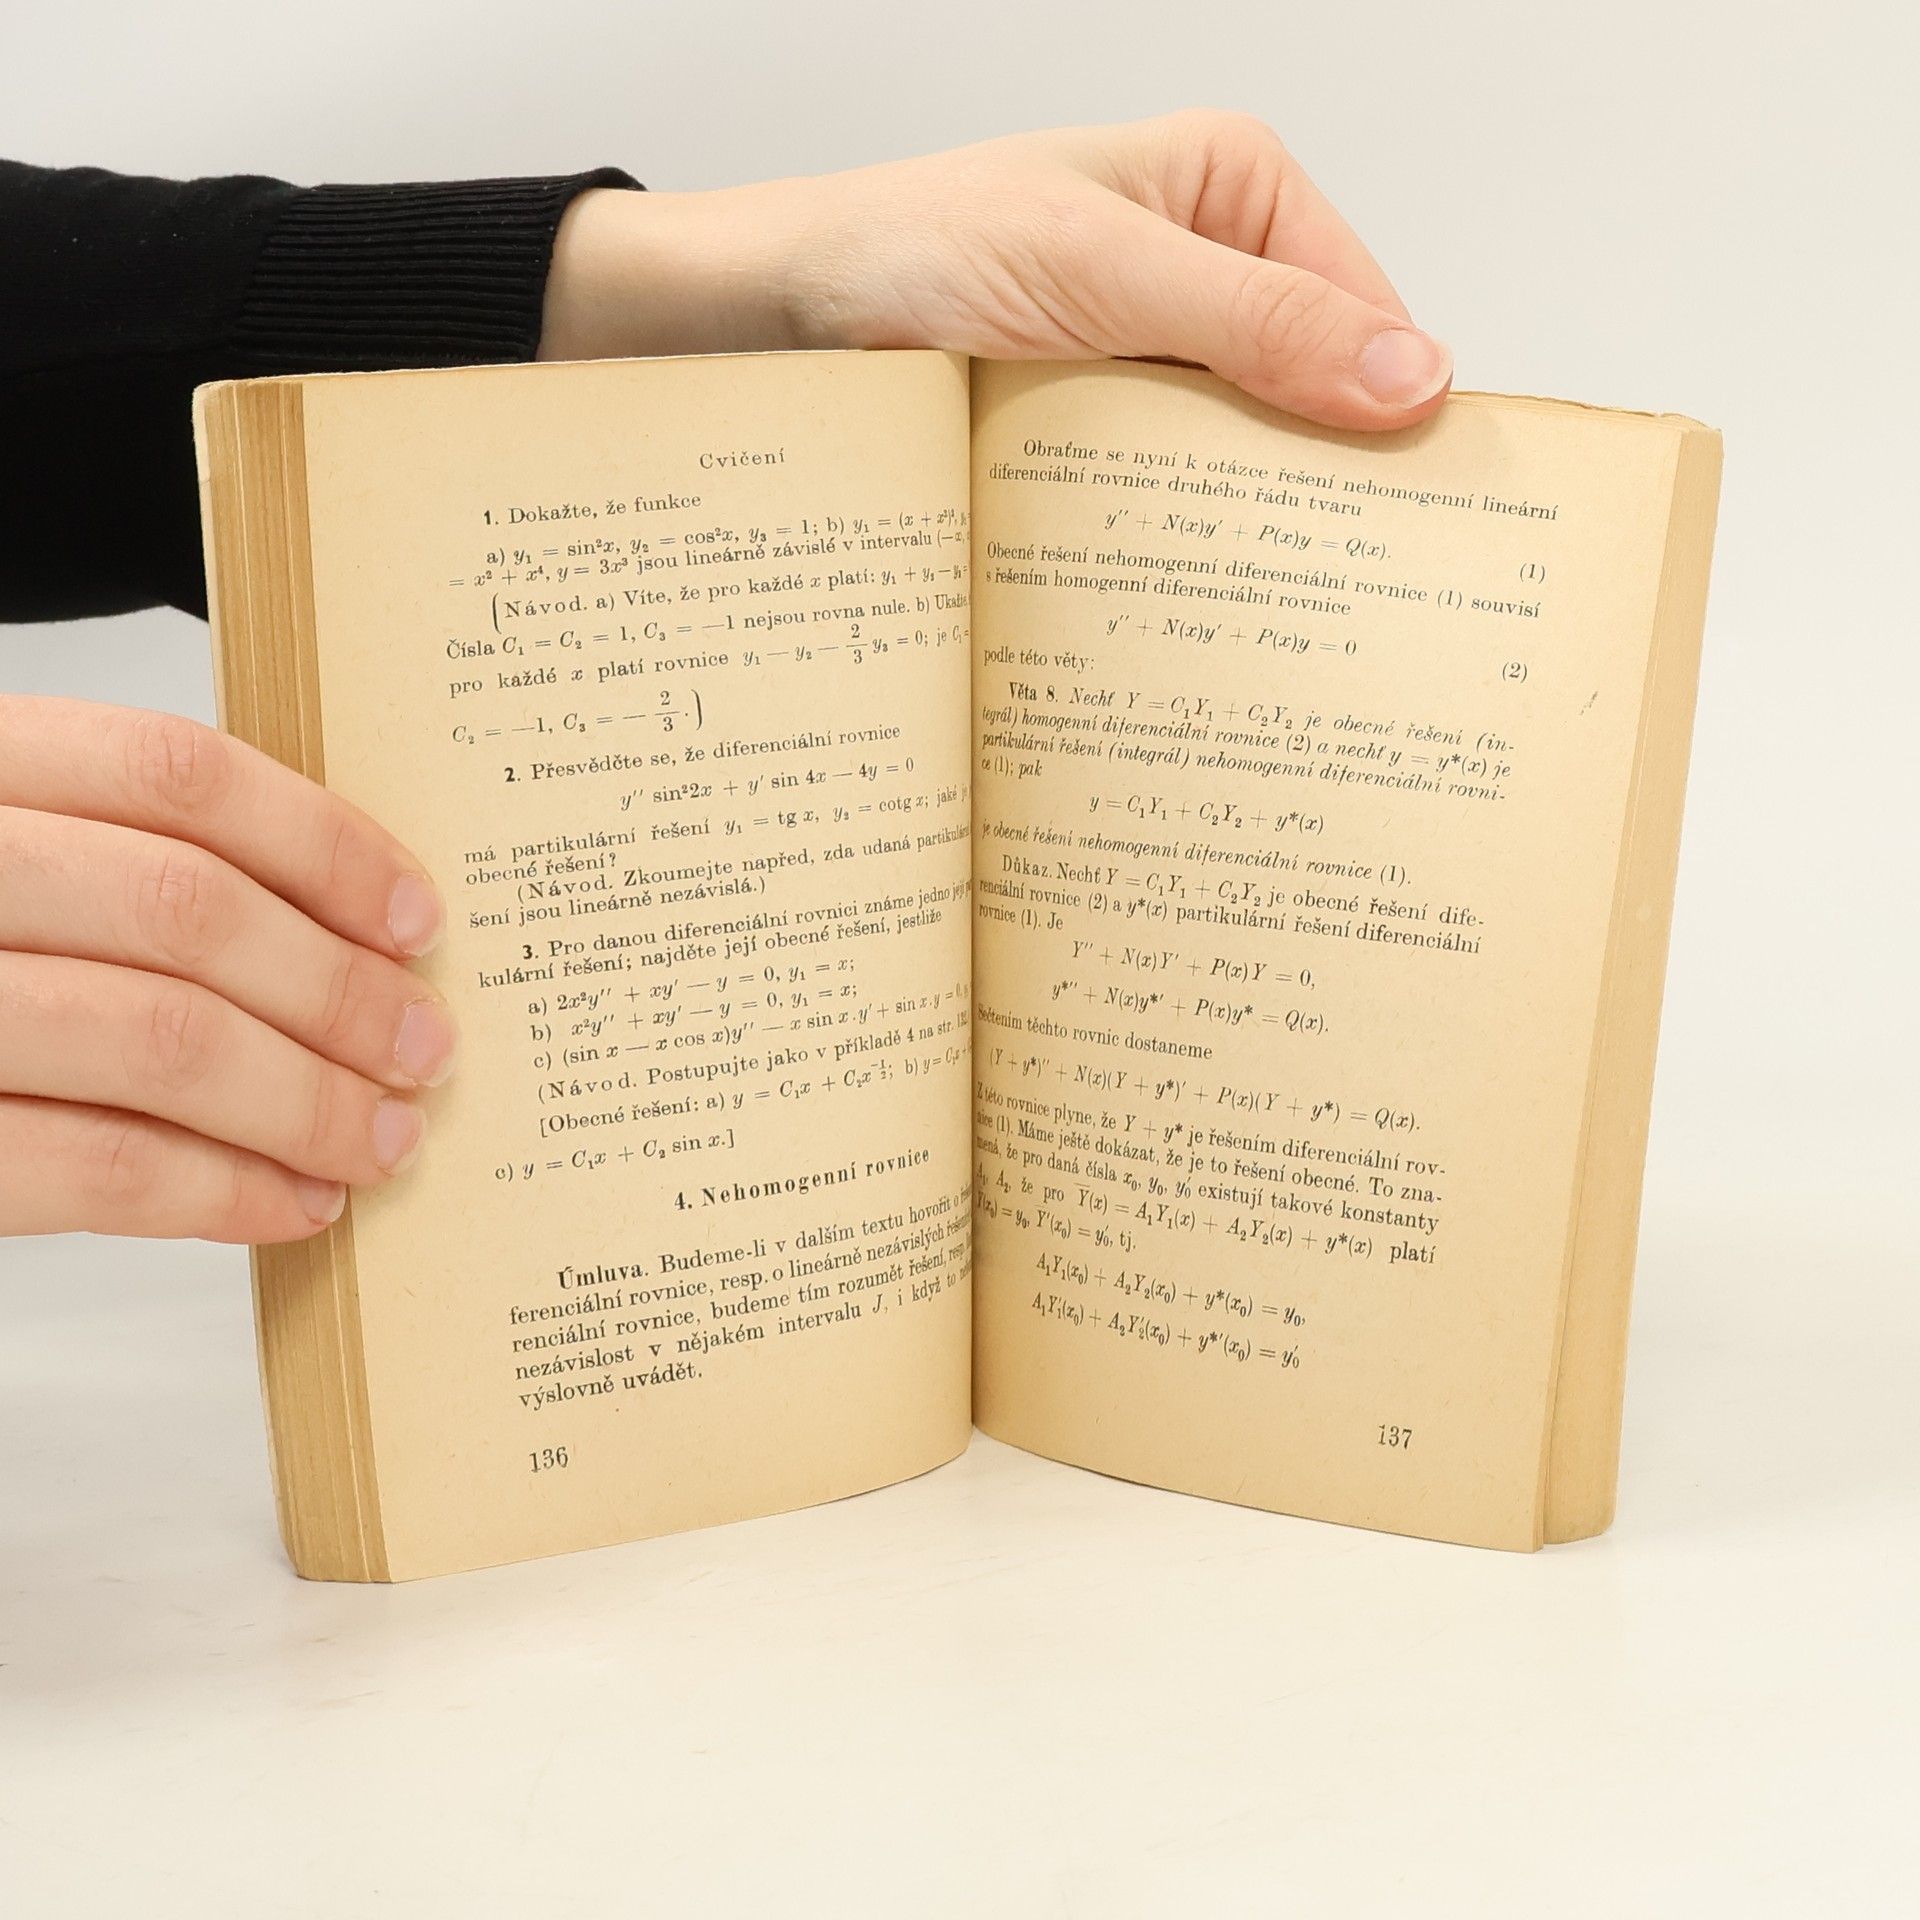 Cvičení
1. Dokažte, že funkce
a) y₁ = sin²x, y₂ = cos²x, y₃ = 1; b) y₁ = (x + x²)²,
= x² + x⁴, y = 3x³ jsou lineárně závislé v intervalu
(Návod. a) Víte, že pro každé x platí: y₁ + y₂ — y₃ =
Čísla C₁ = C₂ = 1, C₃ = —1 nejsou rovna nule. b)
pro každé x platí rovnice y₁ — y₂ — 2/3 y₃ = 0; je C₁ =
C₂ = —1, C₃ = — 2/3.)
2. Přesvědčte se, že diferenciální rovnice
y′′ sin²2x + y′ sin 4x — 4y = 0
má partikulární řešení y₁ = tg x, y₂ = cotg x; jaké je
obecné řešení?
(Návod. Zkoumejte napřed, zda udaná
šení jsou lineárně nezávislá.)
3. Pro danou diferenciální rovnici známe jedno její
kulární řešení; najděte její obecné řešení, jestliže
a) 2x²y′′ + xy′ — y = 0, y₁ = x;
b) x²y′′ + xy′ — y = 0, y₁ = x;
c) (sin x — x cos x)y′′ — x sin x . y′ + sin x . y = 0,
(Návod. Postupujte jako v příkladě 4 na str.
[Obecné řešení: a) y = C₁x + C₂x^(-1/2); b) y = C₁x +
c) y = C₁x + C₂ sin x.]
4. Nehomogenní rovnice
Úmluva. Budeme-li v dalším textu hovořit o
ferenciální rovnice, resp. o lineárně nezávislých
renciální rovnice, budeme tím rozumět řešení, resp.
nezávislost v nějakém intervalu J, i když to
výslovně uvádět.
136
Obraťme se nyní k otázce řešení nehomogenní lineární
diferenciální rovnice druhého řádu tvaru
y′′ + N(x)y′ + P(x)y = Q(x). (1)
Obecné řešení nehomogenní diferenciální rovnice (1) souvisí
s řešením homogenní diferenciální rovnice
y′′ + N(x)y′ + P(x)y = 0 (2)
podle této věty:
Věta 8. Nechť Y = C₁Y₁ + C₂Y₂ je obecné řešení (in-
tegrál) homogenní diferenciální rovnice (2) a nechť y = y*(x) je
partikulární řešení (integrál) nehomogenní diferenciální rovni-
ce (1); pak
y = C₁Y₁ + C₂Y₂ + y*(x)
je obecné řešení nehomogenní diferenciální rovnice (1).
Důkaz. Nechť Y = C₁Y₁ + C₂Y₂ je obecné řešení dife-
renciální rovnice (2) a y*(x) partikulární řešení diferenciální
rovnice (1). Je
Y′′ + N(x)Y′ + P(x)Y = 0,
y*′′ + N(x)y*′ + P(x)y* = Q(x).
Sečtením těchto rovnic dostaneme
(Y + y*)′′ + N(x)(Y + y*)′ + P(x)(Y + y*) = Q(x).
Z této rovnice plyne, že Y + y* je řešením diferenciální rov-
nice (1). Máme ještě dokázat, že je to řešení obecné. To zna-
mená, že pro daná čísla x₀, y₀, y₀′ existují takové konstanty
A₁, A₂, že pro Y̅(x) = A₁Y₁(x) + A₂Y₂(x) + y*(x) platí
Y̅(x₀) = y₀, Y̅′(x₀) = y₀′, tj.
A₁Y₁(x₀) + A₂Y₂(x₀) + y*(x₀) = y₀,
A₁Y₁′(x₀) + A₂Y₂′(x₀) + y*′(x₀) = y₀′
137